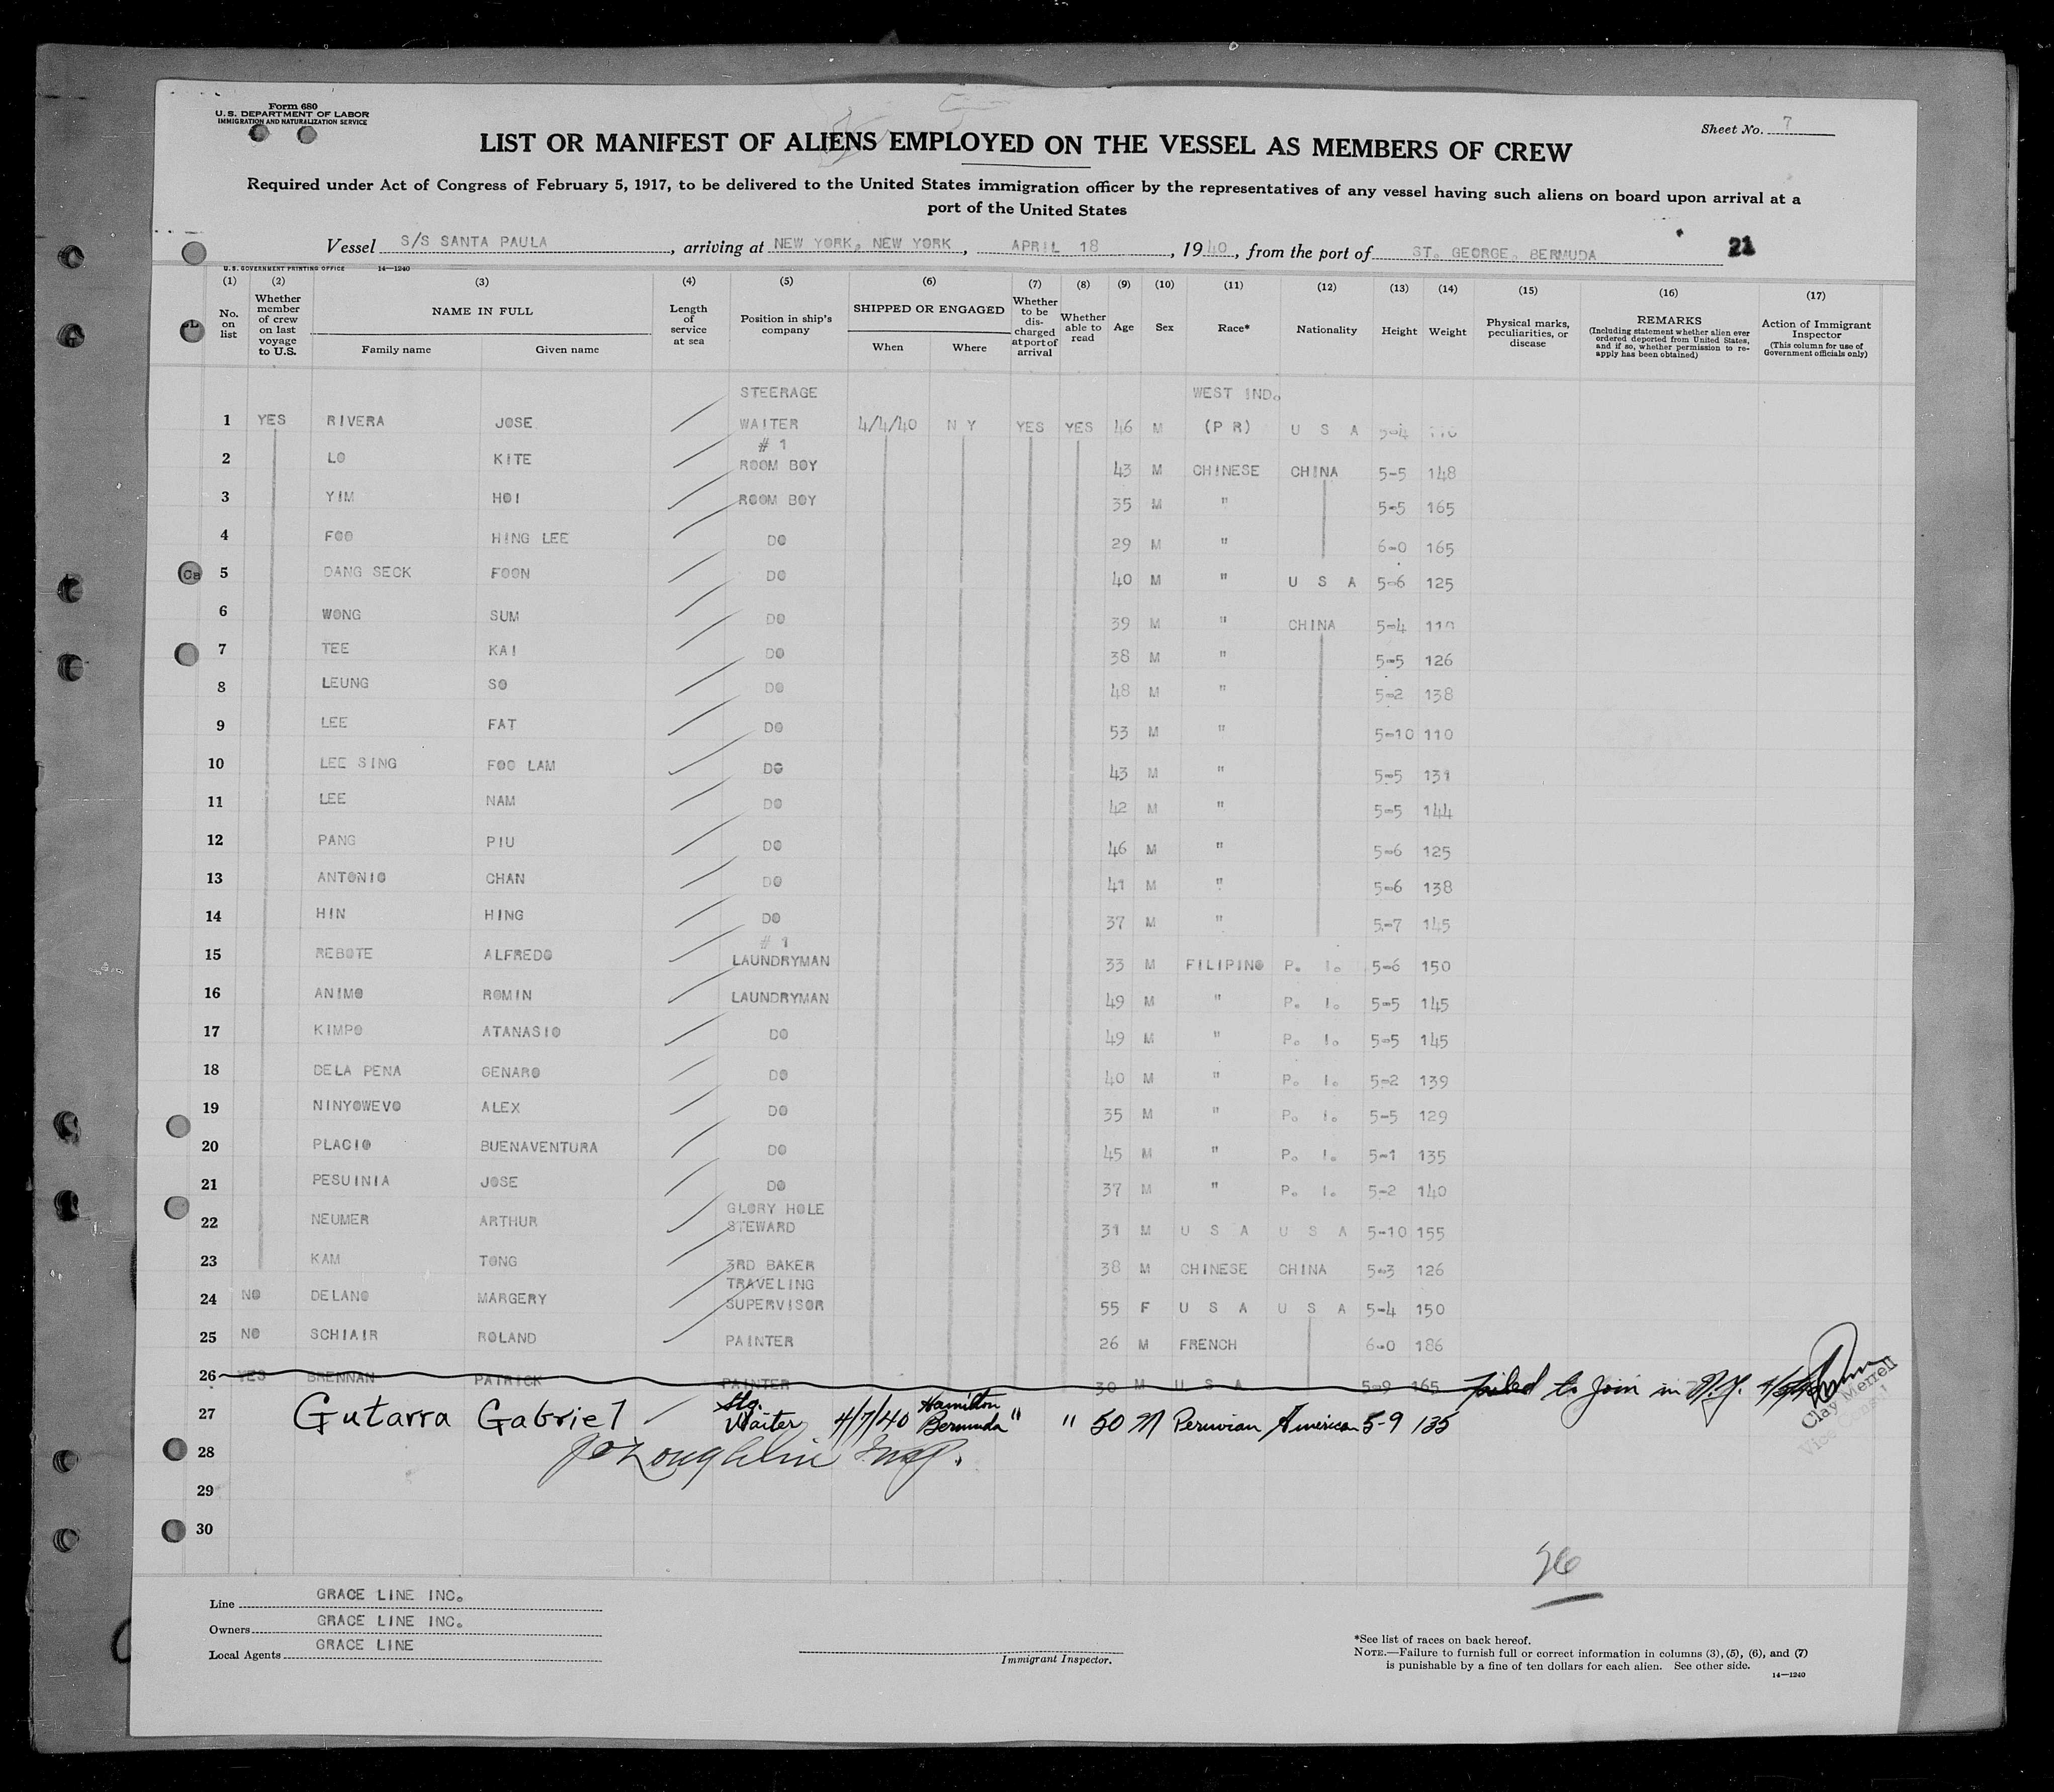 Form 680
U. S. DEPARTMENT OF LABOR
IMMIGRATION AND NATURALIZATION SERVICE
Sheet No. 7
LIST OR MANIFEST OF ALIENS EMPLOYED ON THE VESSEL AS MEMBERS OF CREW
Required under Act of Congress of February 5, 1917, to be delivered to the United States immigration officer by the representatives of any vessel having such aliens on board upon arrival at a
port of the United States
Vessel S/S SANTA PAULA, arriving at NEW YORK, NEW YORK, APRIL 18, 1940, from the port of ST. GEORGE, BERMUDA 21
U. S. GOVERNMENT PRINTING OFFICE 14—1240
(1) No. on list
(2) Whether member of crew on last voyage to U.S.
(3) NAME IN FULL Family name Given name
(4) Length of service at sea
(5) Position in ship's company
(6) SHIPPED OR ENGAGED When Where
(7) Whether to be discharged at port of arrival
(8) Whether able to read
(9) Age
(10) Sex
(11) Race*
(12) Nationality
(13) Height
(14) Weight
(15) Physical marks, peculiarities, or disease
(16) REMARKS (Including statement whether alien ever ordered deported from United States, and if so, whether permission to reapply has been obtained)
(17) Action of Immigrant Inspector (This column for use of Government officials only)
1 YES RIVERA JOSE STEERAGE WAITER 4/4/40 N Y YES YES 46 M WEST IND. (P R) U S A 5-4
2 LO KITE # 1 ROOM BOY 43 M CHINESE CHINA 5-5 148
3 YIM HOI ROOM BOY 35 M " 5-5 165
4 FOO HING LEE DO 29 M " 6-0 165
5 DANG SECK FOON DO 40 M " U S A 5-6 125
6 WONG SUM DO 39 M " CHINA 5-4 110
7 TEE KAI DO 38 M " 5-5 126
8 LEUNG SO DO 48 M " 5-2 138
9 LEE FAT DO 53 M " 5-10 110
10 LEE SING FOO LAM DO 43 M " 5-5 131
11 LEE NAM DO 42 M " 5-5 144
12 PANG PIU DO 46 M " 5-6 125
13 ANTONIO CHAN DO 41 M " 5-6 138
14 HIN HING DO 37 M " 5-7 145
15 REBOTE ALFREDO # 1 LAUNDRYMAN 33 M FILIPINO P. I. 5-6 150
16 ANIMO ROMIN LAUNDRYMAN 49 M " P. I. 5-5 145
17 KIMPO ATANASIO DO 49 M " P. I. 5-5 145
18 DELA PENA GENARO DO 40 M " P. I. 5-2 139
19 NINYOWEVO ALEX DO 35 M " P. I. 5-5 129
20 PLACIO BUENAVENTURA DO 45 M " P. I. 5-1 135
21 PESUINIA JOSE DO 37 M " P. I. 5-2 140
22 NEUMER ARTHUR GLORY HOLE STEWARD 31 M U S A U S A 5-10 155
23 KAM TONG 3RD BAKER 38 M CHINESE CHINA 5-3 126
24 NO DELANO MARGERY TRAVELING SUPERVISOR 55 F U S A U S A 5-4 150
25 NO SCHIAIR ROLAND PAINTER 26 M FRENCH 6-0 186
26 YES BRENNAN PATRICK PAINTER 30 M U S A 5-9 165 Failed to Join in N.Y.
27 Gutarra Gabriel Stg. Waiter 4/7/40 Hamilton Bermuda " " 50 M Peruvian American 5-9 135
Clay Merrell
28 J O'Loughlin Insp.
29
30
26
Line GRACE LINE INC.
Owners GRACE LINE INC.
Local Agents GRACE LINE
Immigrant Inspector.
*See list of races on back hereof.
NOTE.—Failure to furnish full or correct information in columns (3), (5), (6), and (7)
is punishable by a fine of ten dollars for each alien. See other side.
14—1240